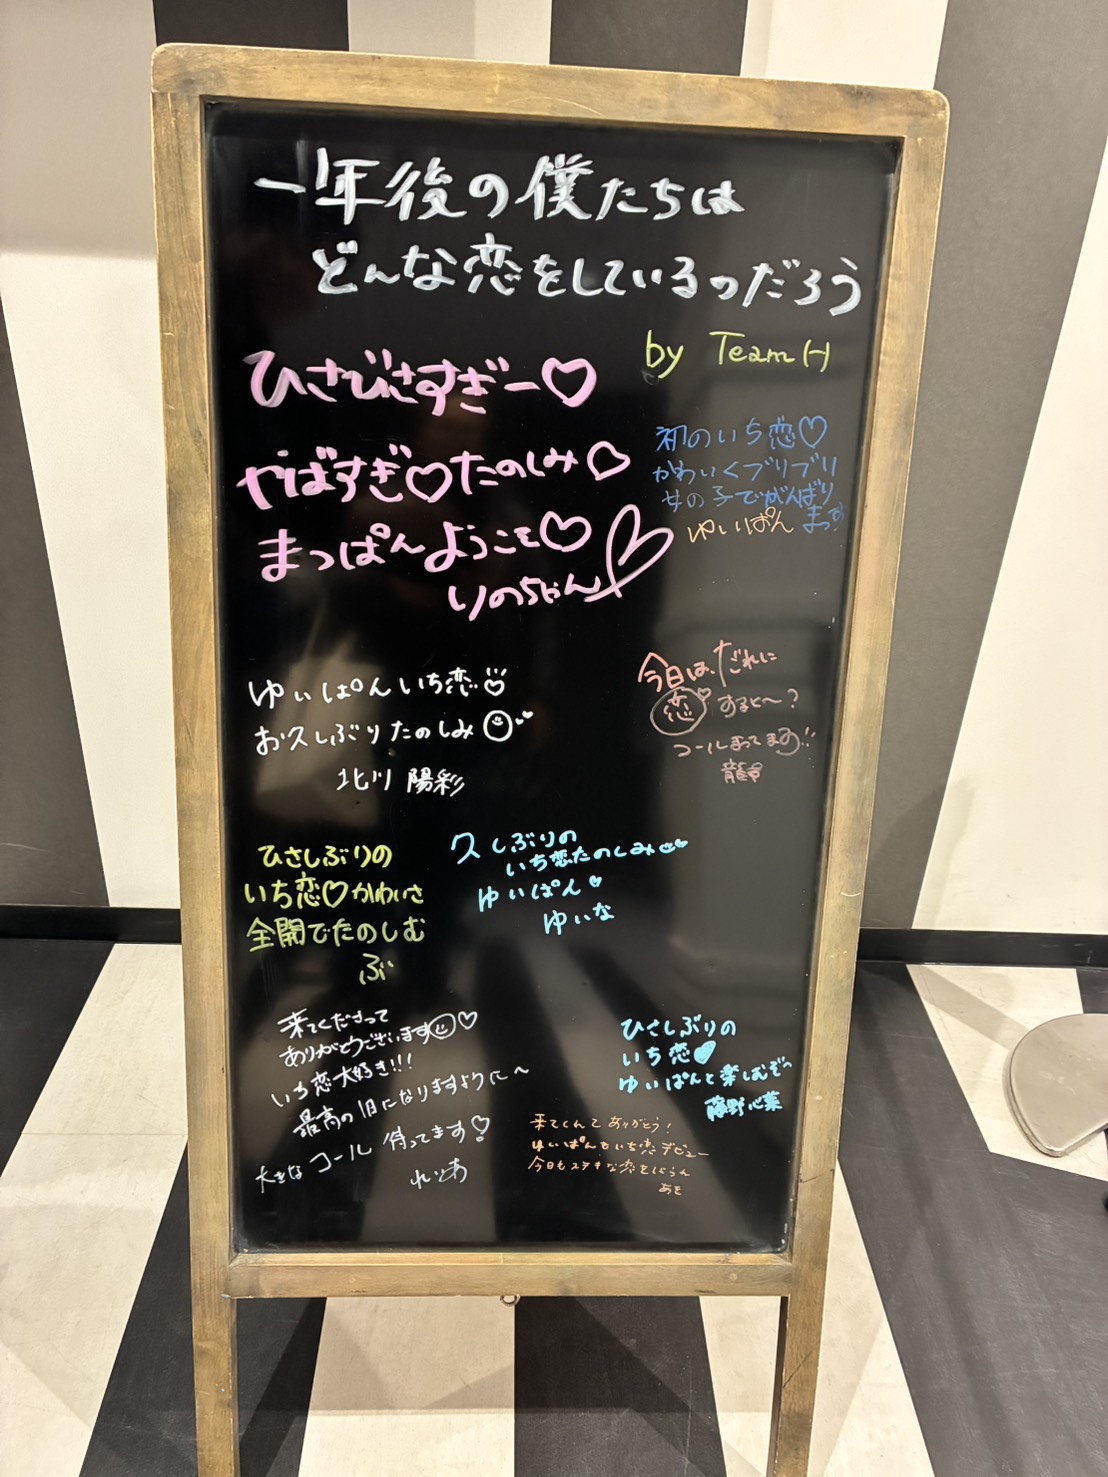 一年後の僕たちは
どんな恋をしているのだろう
by TeamH
ひさびさすぎー♡
やばすぎ♡たのしみ♡
まっぱんようこそ♡
りのちゃん
初のいち恋♡
かわいくブリブリ
女の子でがんばり
ます
ゆいぱん
ゆいぱんいち恋
お久しぶりたのしみ
北川 陽彩
今日は、だれに
恋すると〜?
コールまってます!!
ひさしぶりの
いち恋♡かわいさ
全開でたのしむ
ぶ
久しぶりの
いち恋たのしみ
ゆいぱん♡
ゆいな
来てくださって
ありがとうございます♡
いち恋大好き!!!
最高の1日になりますように〜
大きなコール待ってます♡
れいあ
ひさしぶりの
いち恋♥
ゆいぱんと楽しむぞ〜
藤野心葉
来てくれてありがとう!
ゆいぱんもいち恋デビュー
今日もステキな恋をしようね